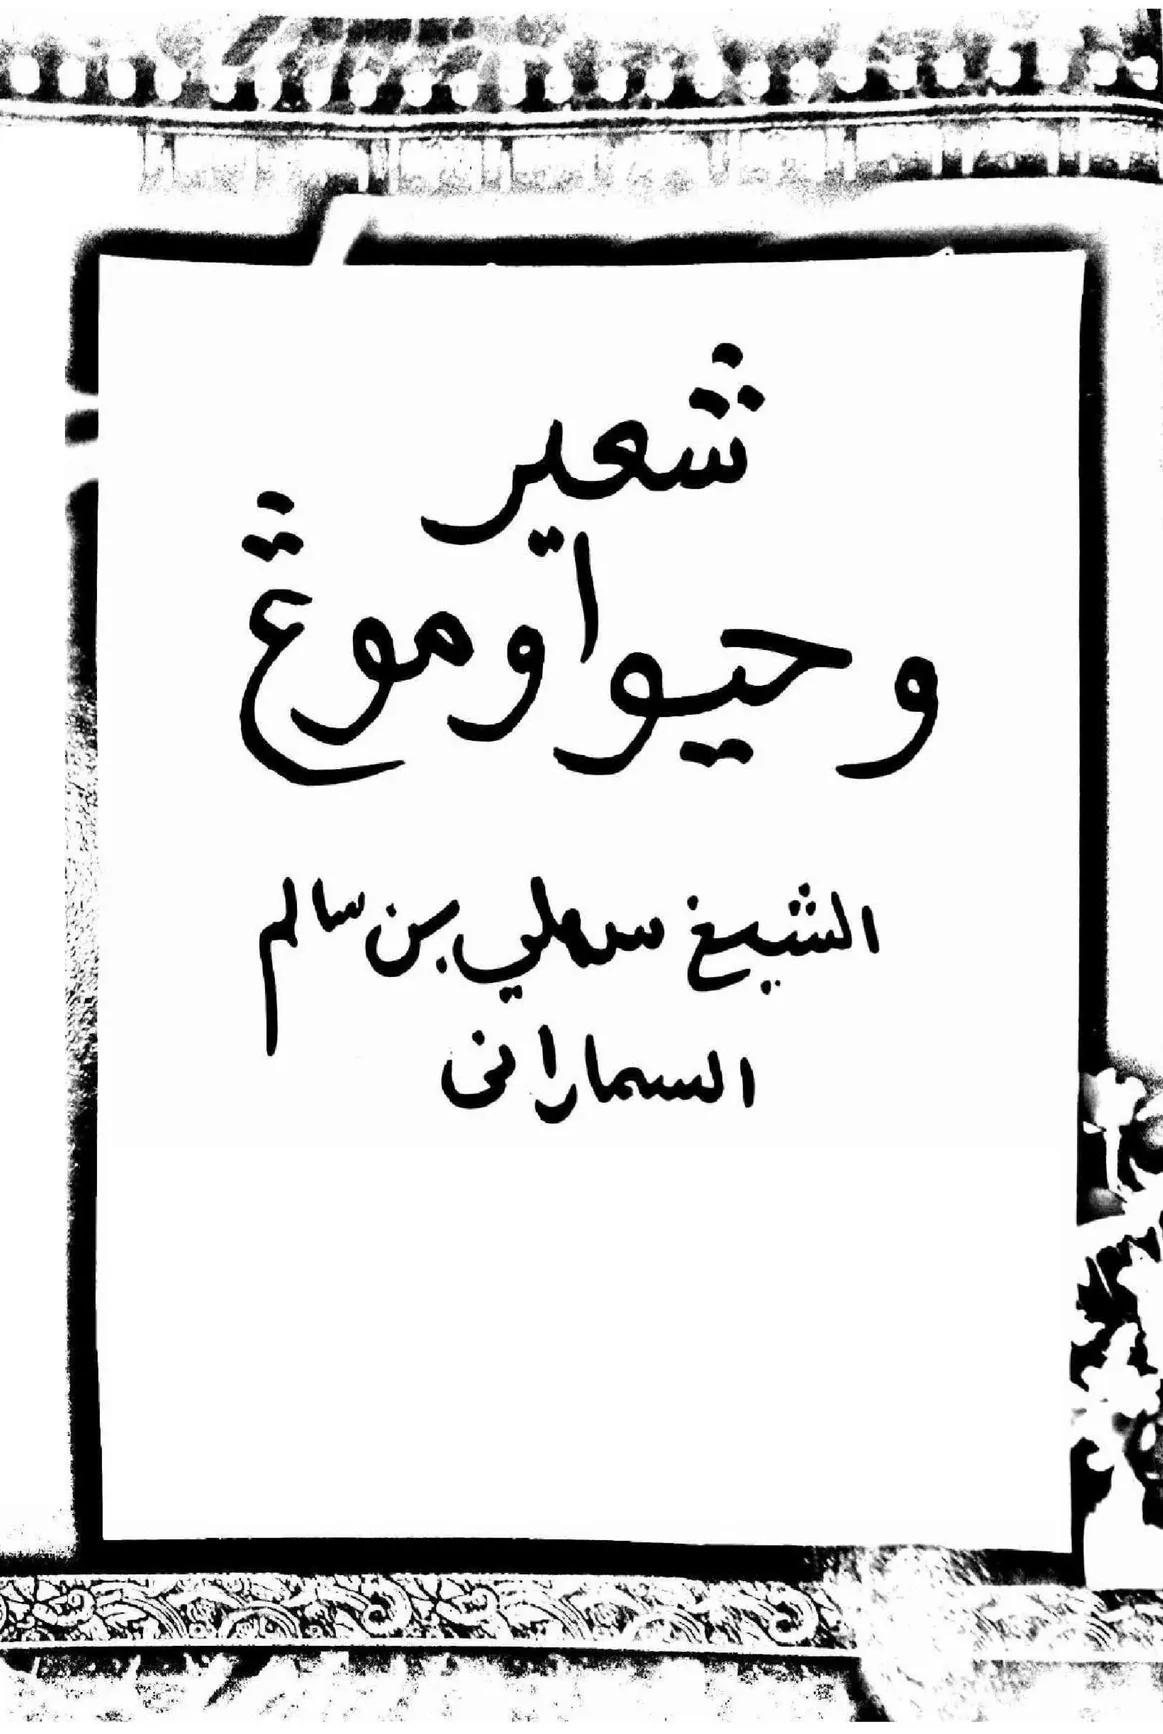 شعير
و حيوا وموڠ
الشيخ سهلي بن سالم
السمارانى